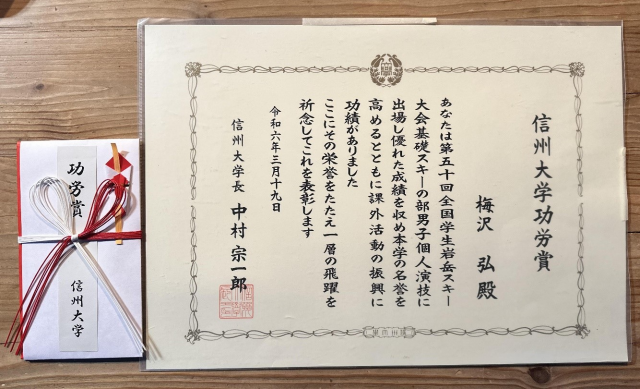 信州大学功労賞
梅沢 弘殿
あなたは第五十回全国学生岩岳スキー
大会基礎スキーの部男子個人演技に
出場し優れた成績を収め本学の名誉を
高めるとともに課外活動の振興に
功績がありました
ここにその栄誉をたたえ一層の飛躍を
祈念してこれを表彰します
令和六年三月十九日
信州大学長 中村宗一郎
功労賞
信州大学